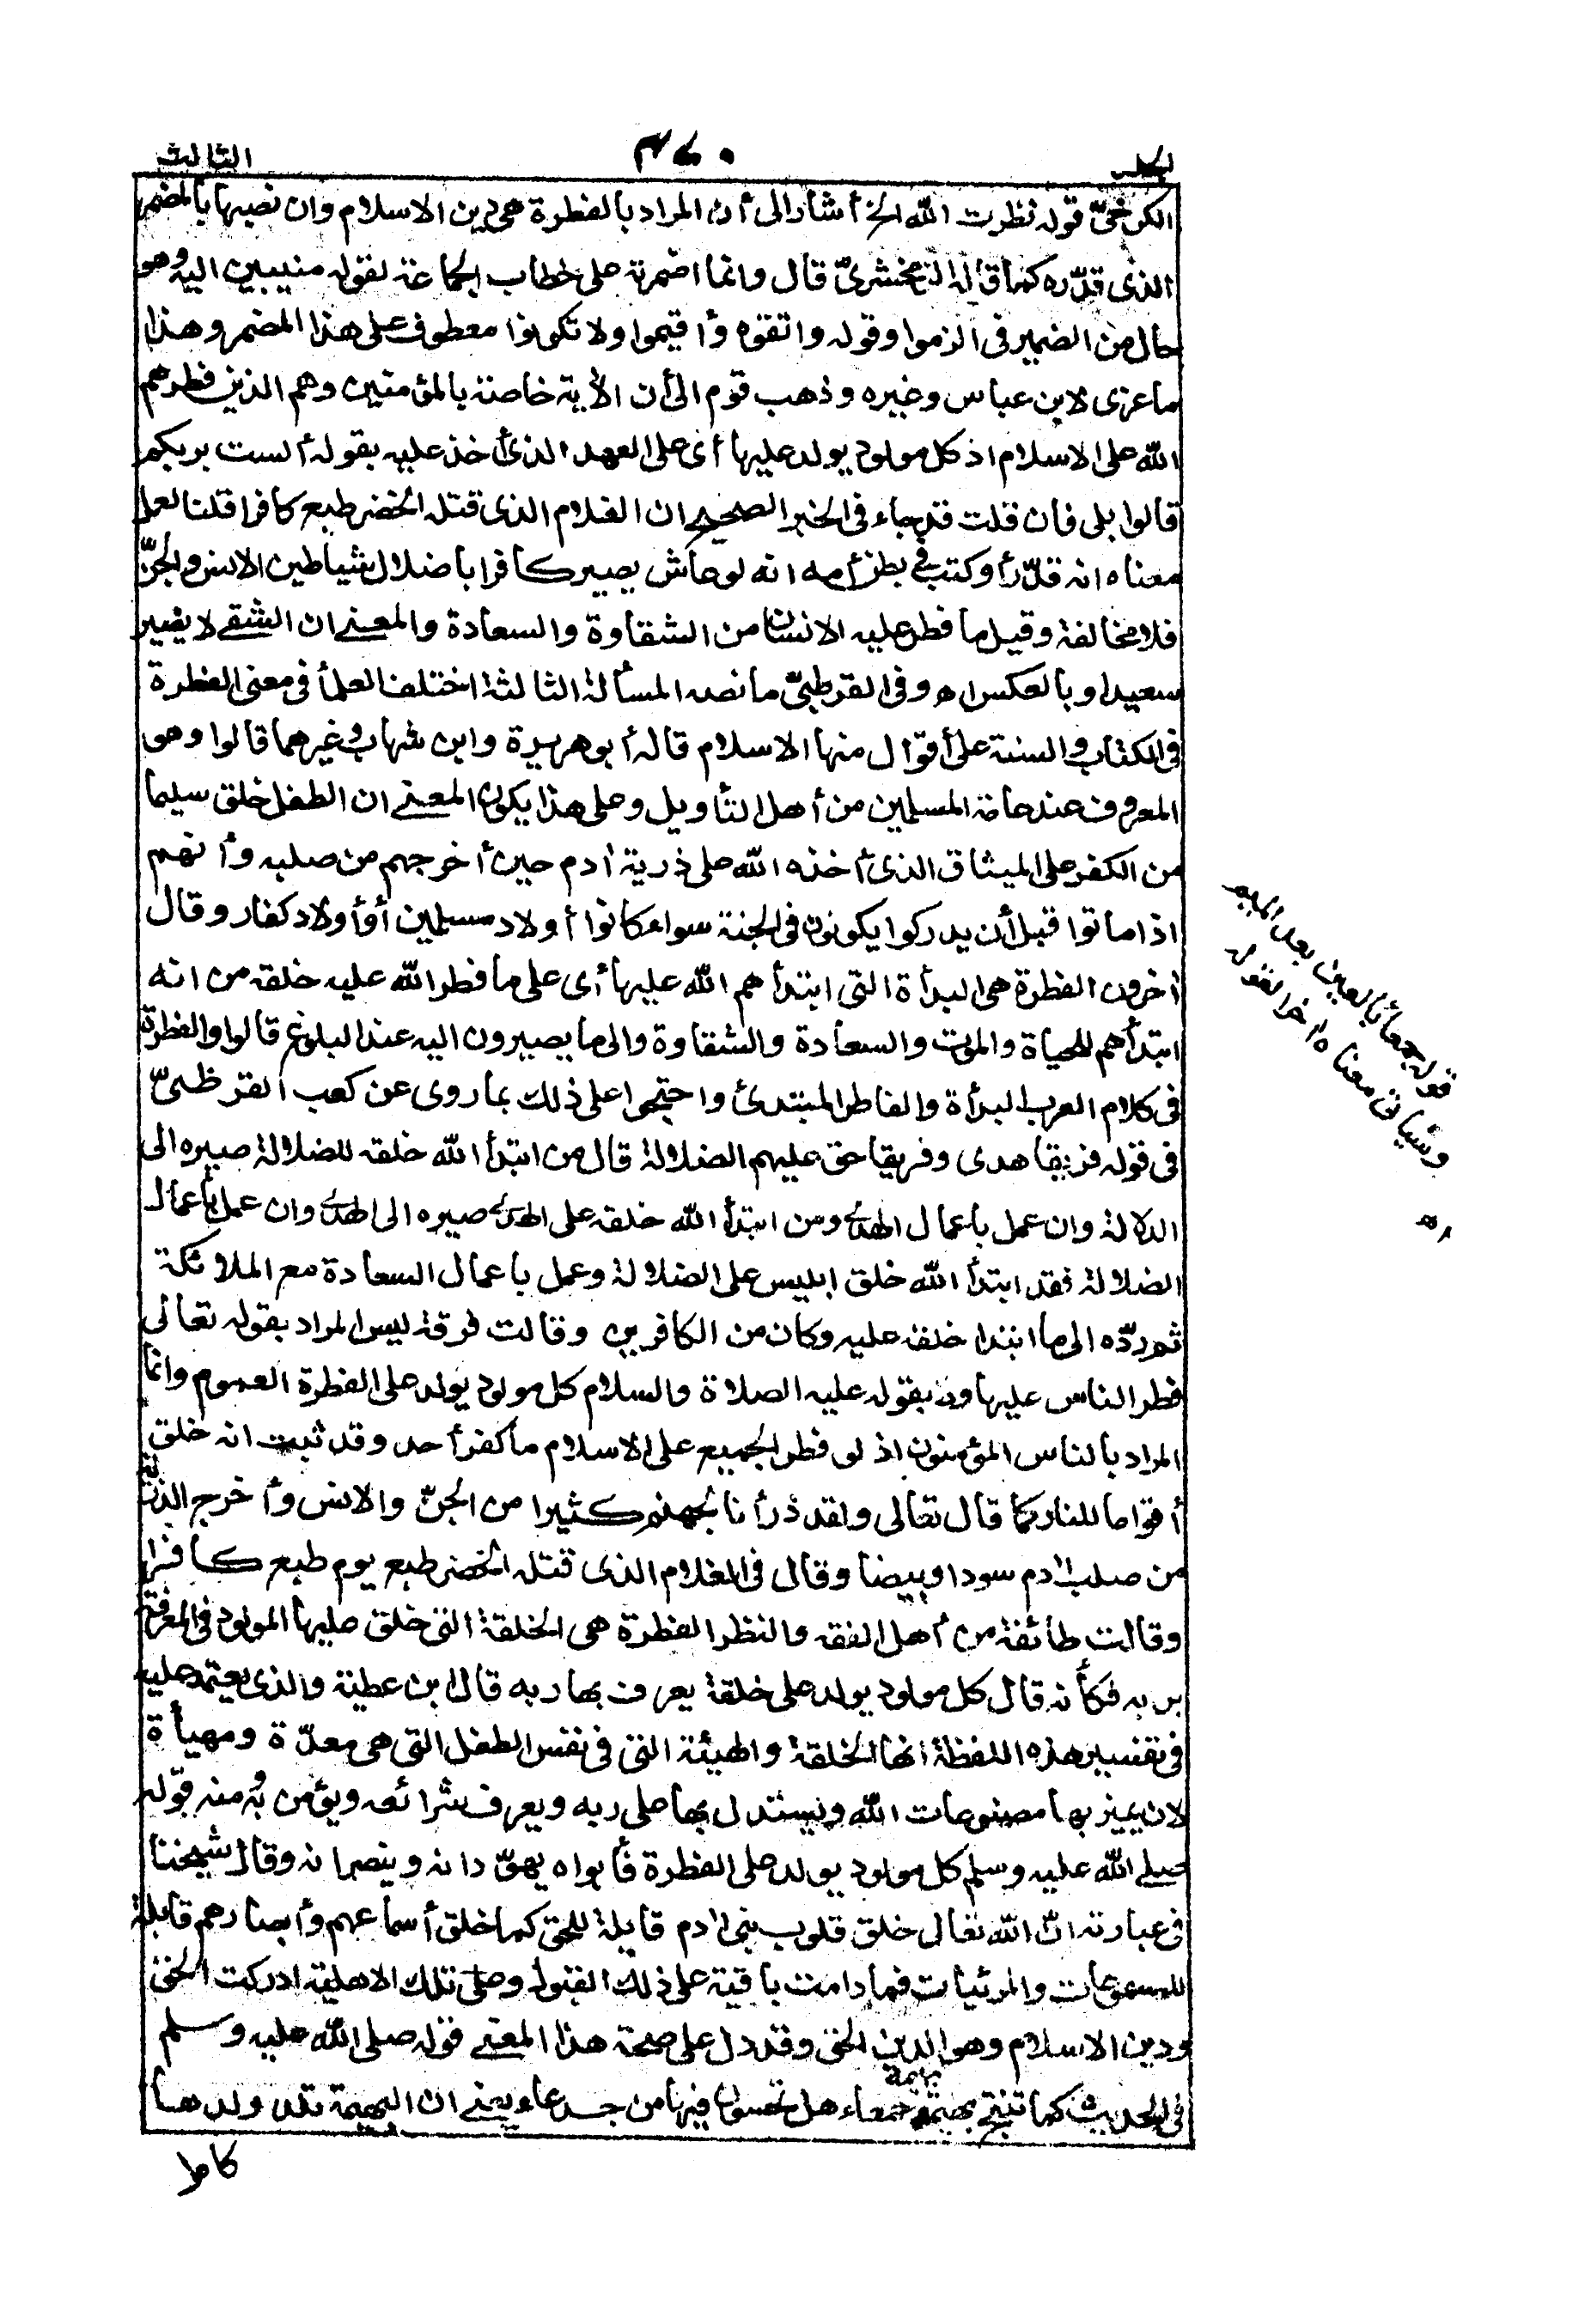 الثالث
٣٧٠
الجلد
الكرخيّ قوله فطرت الله الخ أشار الى أن المراد بالفطرة هى دين الاسلام وان نصبها بالمضمر
الذى قدّره كما قاله الزمخشرىّ قال وانما اضمرته على خطاب الجماعة لقوله منيبين اليه وهو
حال من الضمير فى الزموا وقوله واتقوه وأقيموا ولا تكونوا معطوف على هذا المضمر وهذا
ما عزى لابن عباس وغيره وذهب قوم الى أن الآية خاصة بالمؤمنين وهم الذين فطرهم
الله على الاسلام اذ كل مولود يولد عليها أى على العهد الذى أخذ عليه بقوله ألست بربكم
قالوا بلى فان قلت قد جاء فى الخبر الصحيح ان الغلام الذى قتله الخضر طبع كافرا قلنا لعل
معناه انه قدّر أو كتب فى بطن أمه انه لو عاش يصير كافرا باضلال شياطين الانس والجنّ
فلا مخالفة وقيل ما فطر عليه الانسان من الشقاوة والسعادة والمعنى ان الشقى لا يصير
سعيدا وبالعكس اه وفى القرطبىّ ما نصه المسألة الثالثة اختلف العلمأ فى معنى الفطرة
فى الكتاب والسنة على أقوال منها الاسلام قاله أبو هريرة وابن شهاب وغيرهما قالوا وهو
المعروف عند عامة المسلمين من أهل التأويل وعلى هذا يكون المعنى ان الطفل خلق سليما
من الكفر على الميثاق الذى أخذه الله على ذرية آدم حين أخرجهم من صلبه وأنهم
اذا ماتوا قبل أن يدركوا يكونون فى الجنة سواء كانوا أولاد مسلمين أو أولاد كفار وقال
آخرون الفطرة هى البدأة التى ابتدأهم الله عليها أى على ما فطر الله عليه خلقه من انه
ابتدأهم للحياة والموت والسعادة والشقاوة والى ما يصيرون اليه عند البلوغ قالوا والفطرة
فى كلام العرب البدأة والفاطر المبتدئ واحتجوا على ذلك بما روى عن كعب القرظىّ
فى قوله فريقا هدى وفريقا حق عليهم الضلالة قال من ابتدأ الله خلقه للضلالة صيره الى
الدلالة وان عمل باعمال الهدى ومن ابتدأ الله خلقه على الهدى صيره الى الهدى وان عمل بأعمال
الضلالة فقد ابتدأ الله خلق ابليس على الضلالة وعمل باعمال السعادة مع الملائكة
ثم ردّه الى ما ابتدا خلقه عليه وكان من الكافرين وقالت فرقة ليس المراد بقوله تعالى
فطر الناس عليها ولا بقوله عليه الصلاة والسلام كل مولود يولد على الفطرة العموم وانما
المراد بالناس المؤمنون اذ لو فطر الجميع على الاسلام ما كفر أحد وقد ثبت انه خلق
أقواما للنار كما قال تعالى ولقد ذرأنا لجهنم كثيرا من الجنّ والانس وأخرج الذرية
من صلب آدم سودا وبيضا وقال فى الغلام الذى قتله الخضر طبع يوم طبع كافرا
وقالت طائفة من أهل الفقه والنظر الفطرة هى الخلقة التى خلق عليها المولود فى المعرفة
بربه فكأنه قال كل مولود يولد على خلقة يعرف بها ربه قال ابن عطية والذى يعتمد عليه
فى تفسير هذه اللفظة انها الخلقة والهيئة التى فى نفس الطفل التى هى معدّة ومهيأة
لان يميز بها مصنوعات الله ويستدل بها على ربه ويعرف شرائعه ويؤمن به ومنه قوله
صلى الله عليه وسلم كل مولود يولد على الفطرة فأبواه يهوّدانه وينصرانه وقال شيخنا
فى عبارته انّ الله تعالى خلق قلوب بنى آدم قابلة للحق كما خلق أسماعهم وأبصارهم قابلة
للمسموعات والمرئيات فما دامت باقية على ذلك القبول وعلى تلك الاهلية ادركت الحق
ودين الاسلام وهو الدين الحق وقد دل على صحة هذا المعنى قوله صلى الله عليه وسلم
فى الحديث كما تنتج بهيمة بهيمة جمعاء هل تحسون فيها من جدعاء يعنى ان البهيمة تلد ولدها
كاملا
قوله جمعأ بالعين بعد الميم
وسيأتى معناه اخر القوله
اه